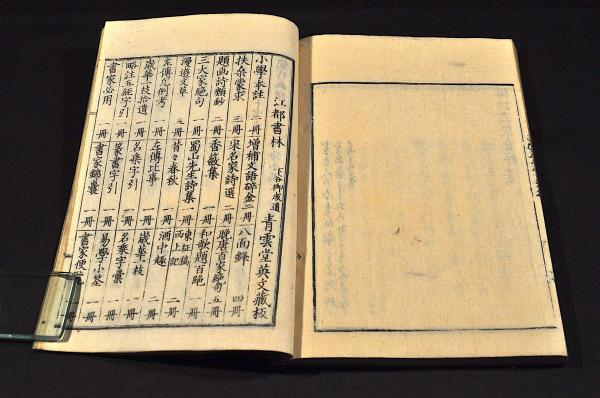 江都書林 下谷御成道 青雲堂英文藏板
小學本註 三冊 増補文語碎金 二冊 八面鋒 四冊
扶桑蒙求 三冊 宋名家詩選 二冊 晩唐百家絶句 五冊
題画詩類鈔 二冊 香蘞集 一冊 和歌題百絶 一冊
三大家絶句 一冊 蜀山先生詩集 東征稿 西上記
漫遊文草 五冊 昔々春秋 一冊 酒中趣 二冊
左傳凡例考 一冊 左傳比事 歳華一枝 一冊
歳華一枝拾遺 一冊 名乗字引 一冊 名乗字彙 一冊
略註五經字引 一冊 篆書字引 一冊 易學小筌 一冊
書家必用 一冊 書家錦嚢 一冊 書家便覧